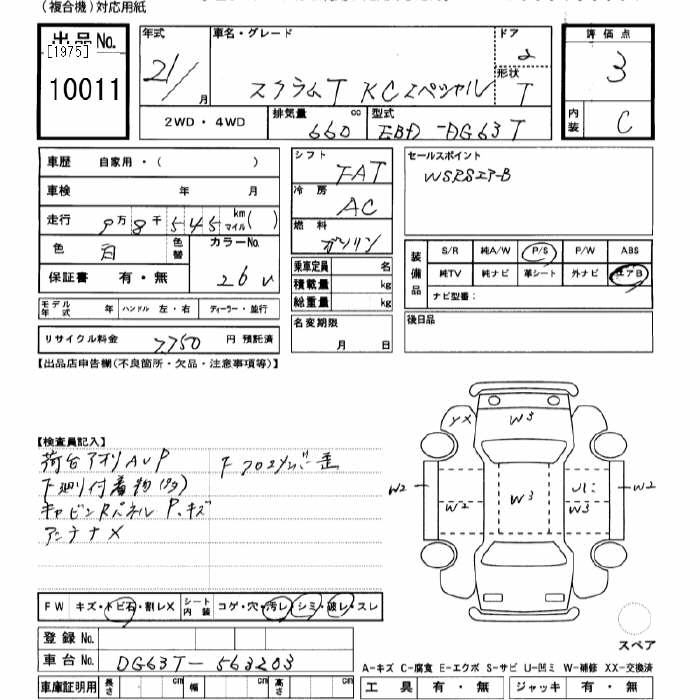 (複合機)対応用紙
出品No. [1975] 10011
年式 21/ 月
車名・グレード スクラムT KCスペシャル
ドア 2
形状 T
評価点 3
内装 C
2WD・4WD
排気量 660 cc
型式 EBD-DG63T
車歴 自家用・( )
車検 年 月
走行 9万8千545 km マイル( )
色 白 色替
カラーNo. 26U
保証書 有・無
モデル年式 年 ハンドル 左・右 ディーラー・並行
リサイクル料金 7,750 円 預託済
シフト FAT
冷房 AC
燃料 ガソリン
乗車定員 名
積載量 kg
総重量 kg
名変期限 月 日
セールスポイント
WSRSエアーB
装備品 S/R 純A/W P/S P/W ABS
純TV 純ナビ 革シート 外ナビ エアB
ナビ型番:
後日品
【出品店申告欄(不良箇所・欠品・注意事項等)】
【検査員記入】
荷台アオリAUP
下廻り付着物(多)
キャビンRパネルP.キズ
アンテナX
YX
W3
W2
W2
W3
U
W3
W2
FW キズ・トビ石・割レX シート内装 コゲ・穴・汚レ・シミ・破レ・スレ
スペア
登録No.
車台No. DG63T-563203
A-キズ C-腐食 E-エクボ S-サビ U-凹ミ W-補修 XX-交換済
車庫証明用 長さ cm 幅 cm 高さ cm
工具 有・無 ジャッキ 有・無